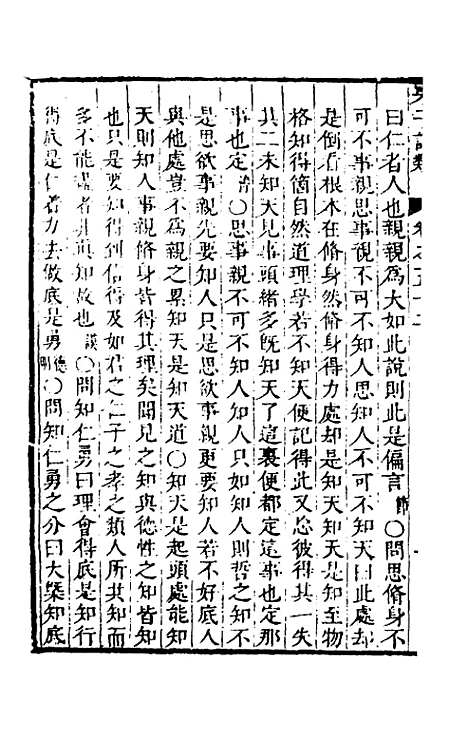 朱子語類 卷之六十
曰仁者人也親親爲大如此說則此是偏言節〇問思脩身不
可不事親思事親不可不知人思知人不可不知天曰此處却
是倒看根本在脩身然脩身得力處却是知天知天是知至物
格知得箇自然道理學若不知天便記得此又忘彼得其一失
其二未知天見事頭緒多旣知天了這裏便都定這事也定那
事也定節〇思事親不可不知人知人只如知人則哲之知不
是思欲事親先要知人只是思欲事親更要知人若不好底人
與他處豈不爲親之累知天是知天道〇知天是起頭處能知
天則知人事親脩身皆得其理矣聞見之知與德性之知皆知
也只是要知得到信得及如君之仁子之孝之類人所共知而
多不能盡者非真知故也謨〇問知仁勇曰理會得底是知行
得底是仁著力去做底是勇德明〇問知仁勇之分曰大槩知底